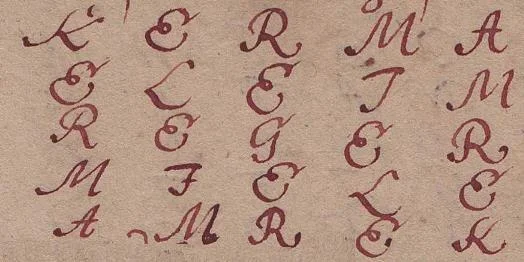 K E R M A
E L E I M
R E G E R
M I E L E
A M R E K